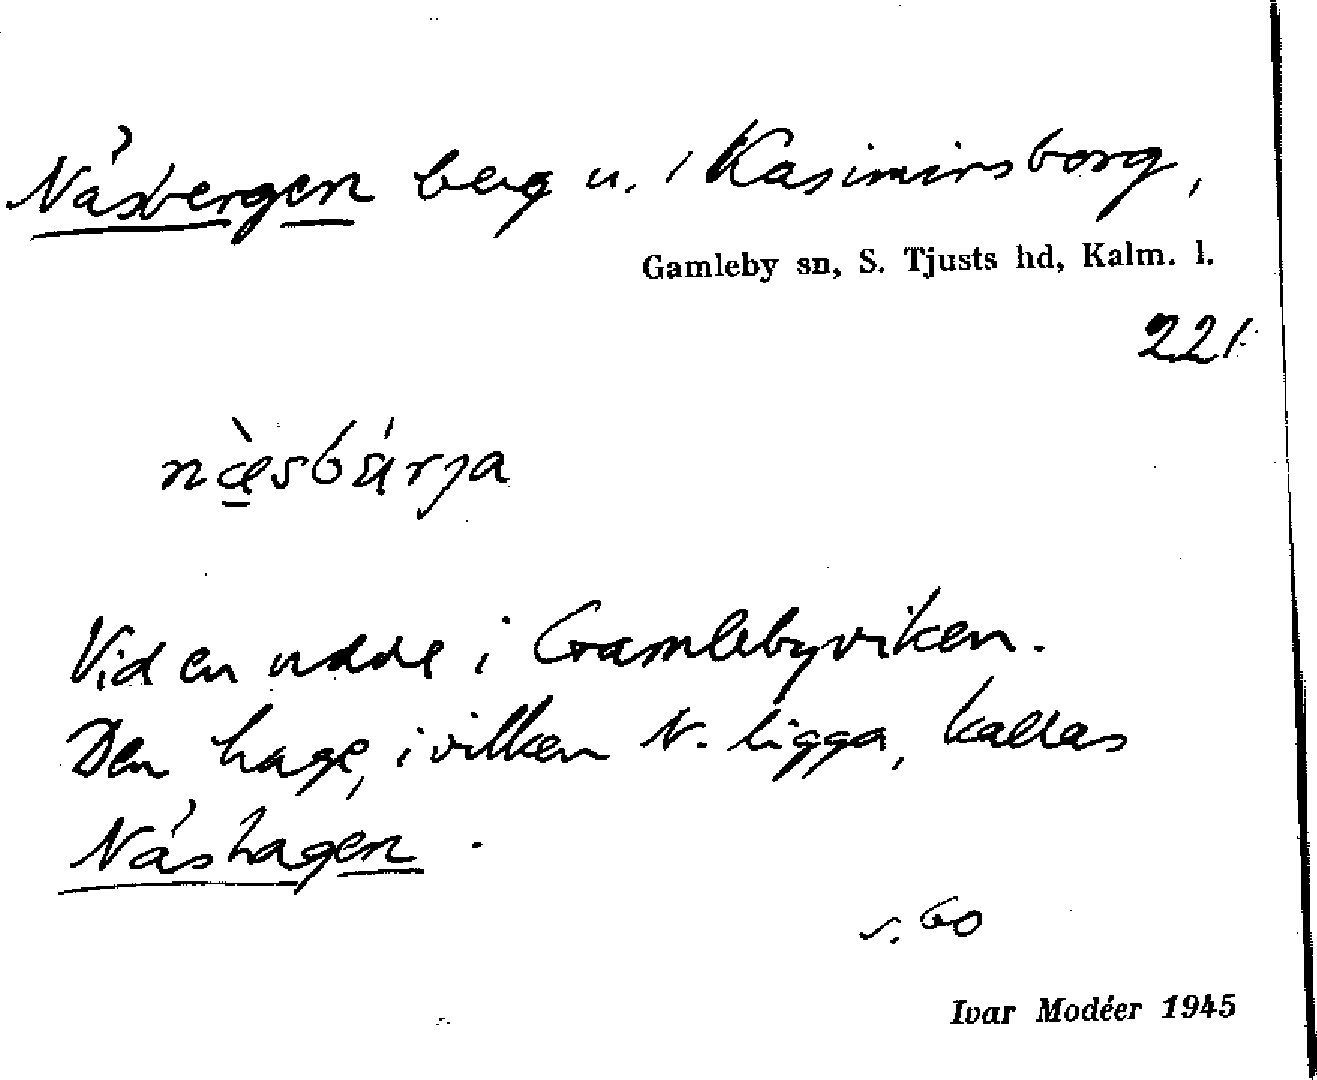 Näsbergen berg u. / Kasimirsborg,
Gamleby sn, S. Tjusts hd, Kalm. l.
221
Vid en udde i Gamlebyviken.
Den hage, i vilken N. ligga, kallas
Näshagen.
s. 60
Ivar Modéer 1945